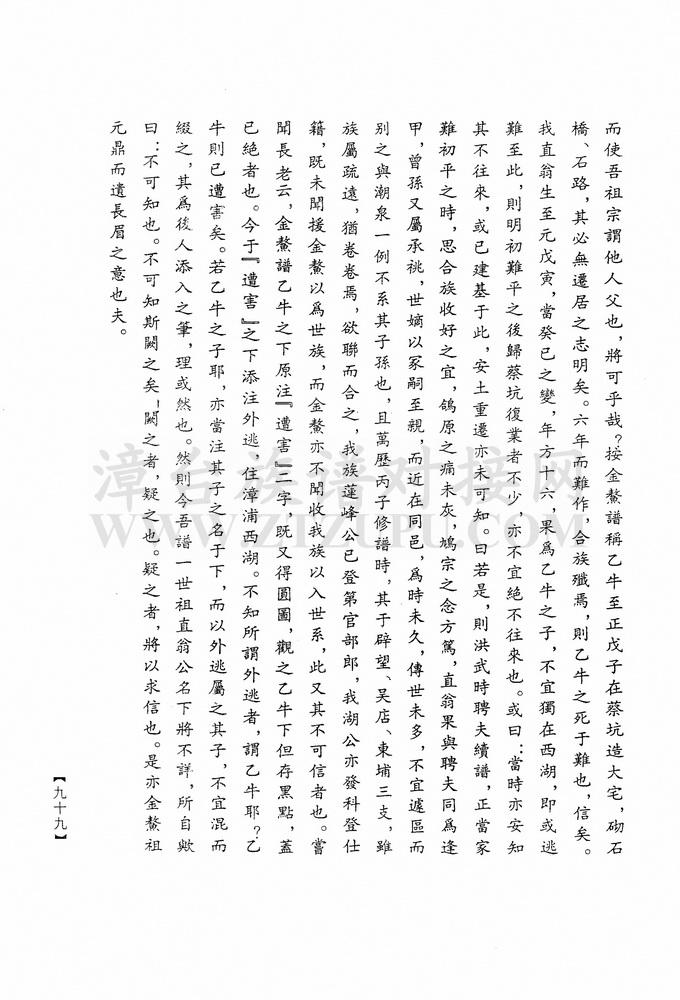 而使吾祖宗謂他人父也，將可乎哉？按金鰲譜稱乙牛至正戊子在蔡坑造大宅，砌石
橋、石路，其必無遷居之志明矣。六年而難作，合族殲焉，則乙牛之死于難也，信矣。
我直翁生至元戊寅，當癸巳之變，年方十六，果爲乙牛之子，不宜獨在西湖，即或逃
難至此，則明初難平之後歸蔡坑復業者不少，亦不宜絕不往來也。或曰：當時亦安知
其不往來，或已建基于此，安土重遷亦未可知。曰若是，則洪武時聘夫續譜，正當家
難初平之時，思合族收好之宜，鴿原之痛未灰，鳩宗之念方篤，直翁果與聘夫同爲逢
甲，曾孫又屬承祧，世嫡以冢嗣至親，而近在同邑，爲時未久，傳世未多，不宜遽區而
別之與潮泉一例不系其子孫也，且萬歷丙子修譜時，其于辟望、吴店、東埔三支，雖
族屬疏遠，猶卷卷焉，欲聯而合之，我族蓮峰公已登第官部郎，我湖公亦發科登仕
籍，既未聞援金鰲以爲世族，而金鰲亦不聞收我族以入世系，此又其不可信者也。嘗
聞長老云，金鰲譜乙牛之下原注『遭害』二字，既又得圓圖，觀之乙牛下但存黑點，蓋
已絕者也。今于『遭害』之下添注外逃，住漳浦西湖。不知所謂外逃者，謂乙牛耶？乙
牛則已遭害矣。若乙牛之子耶，亦當注其子之名于下，而以外逃屬之其子，不宜混而
綴之，其爲後人添入之筆，理或然也。然則今吾譜一世祖直翁公名下將不詳，所自歟
曰：不可知也。不可知斯闕之矣！闕之者，疑之也。疑之者，將以求信也。是亦金鰲祖
元鼎而遺長眉之意也夫。
【九十九】
漳台族谱对接网
WWW.ZTZUPU.COM